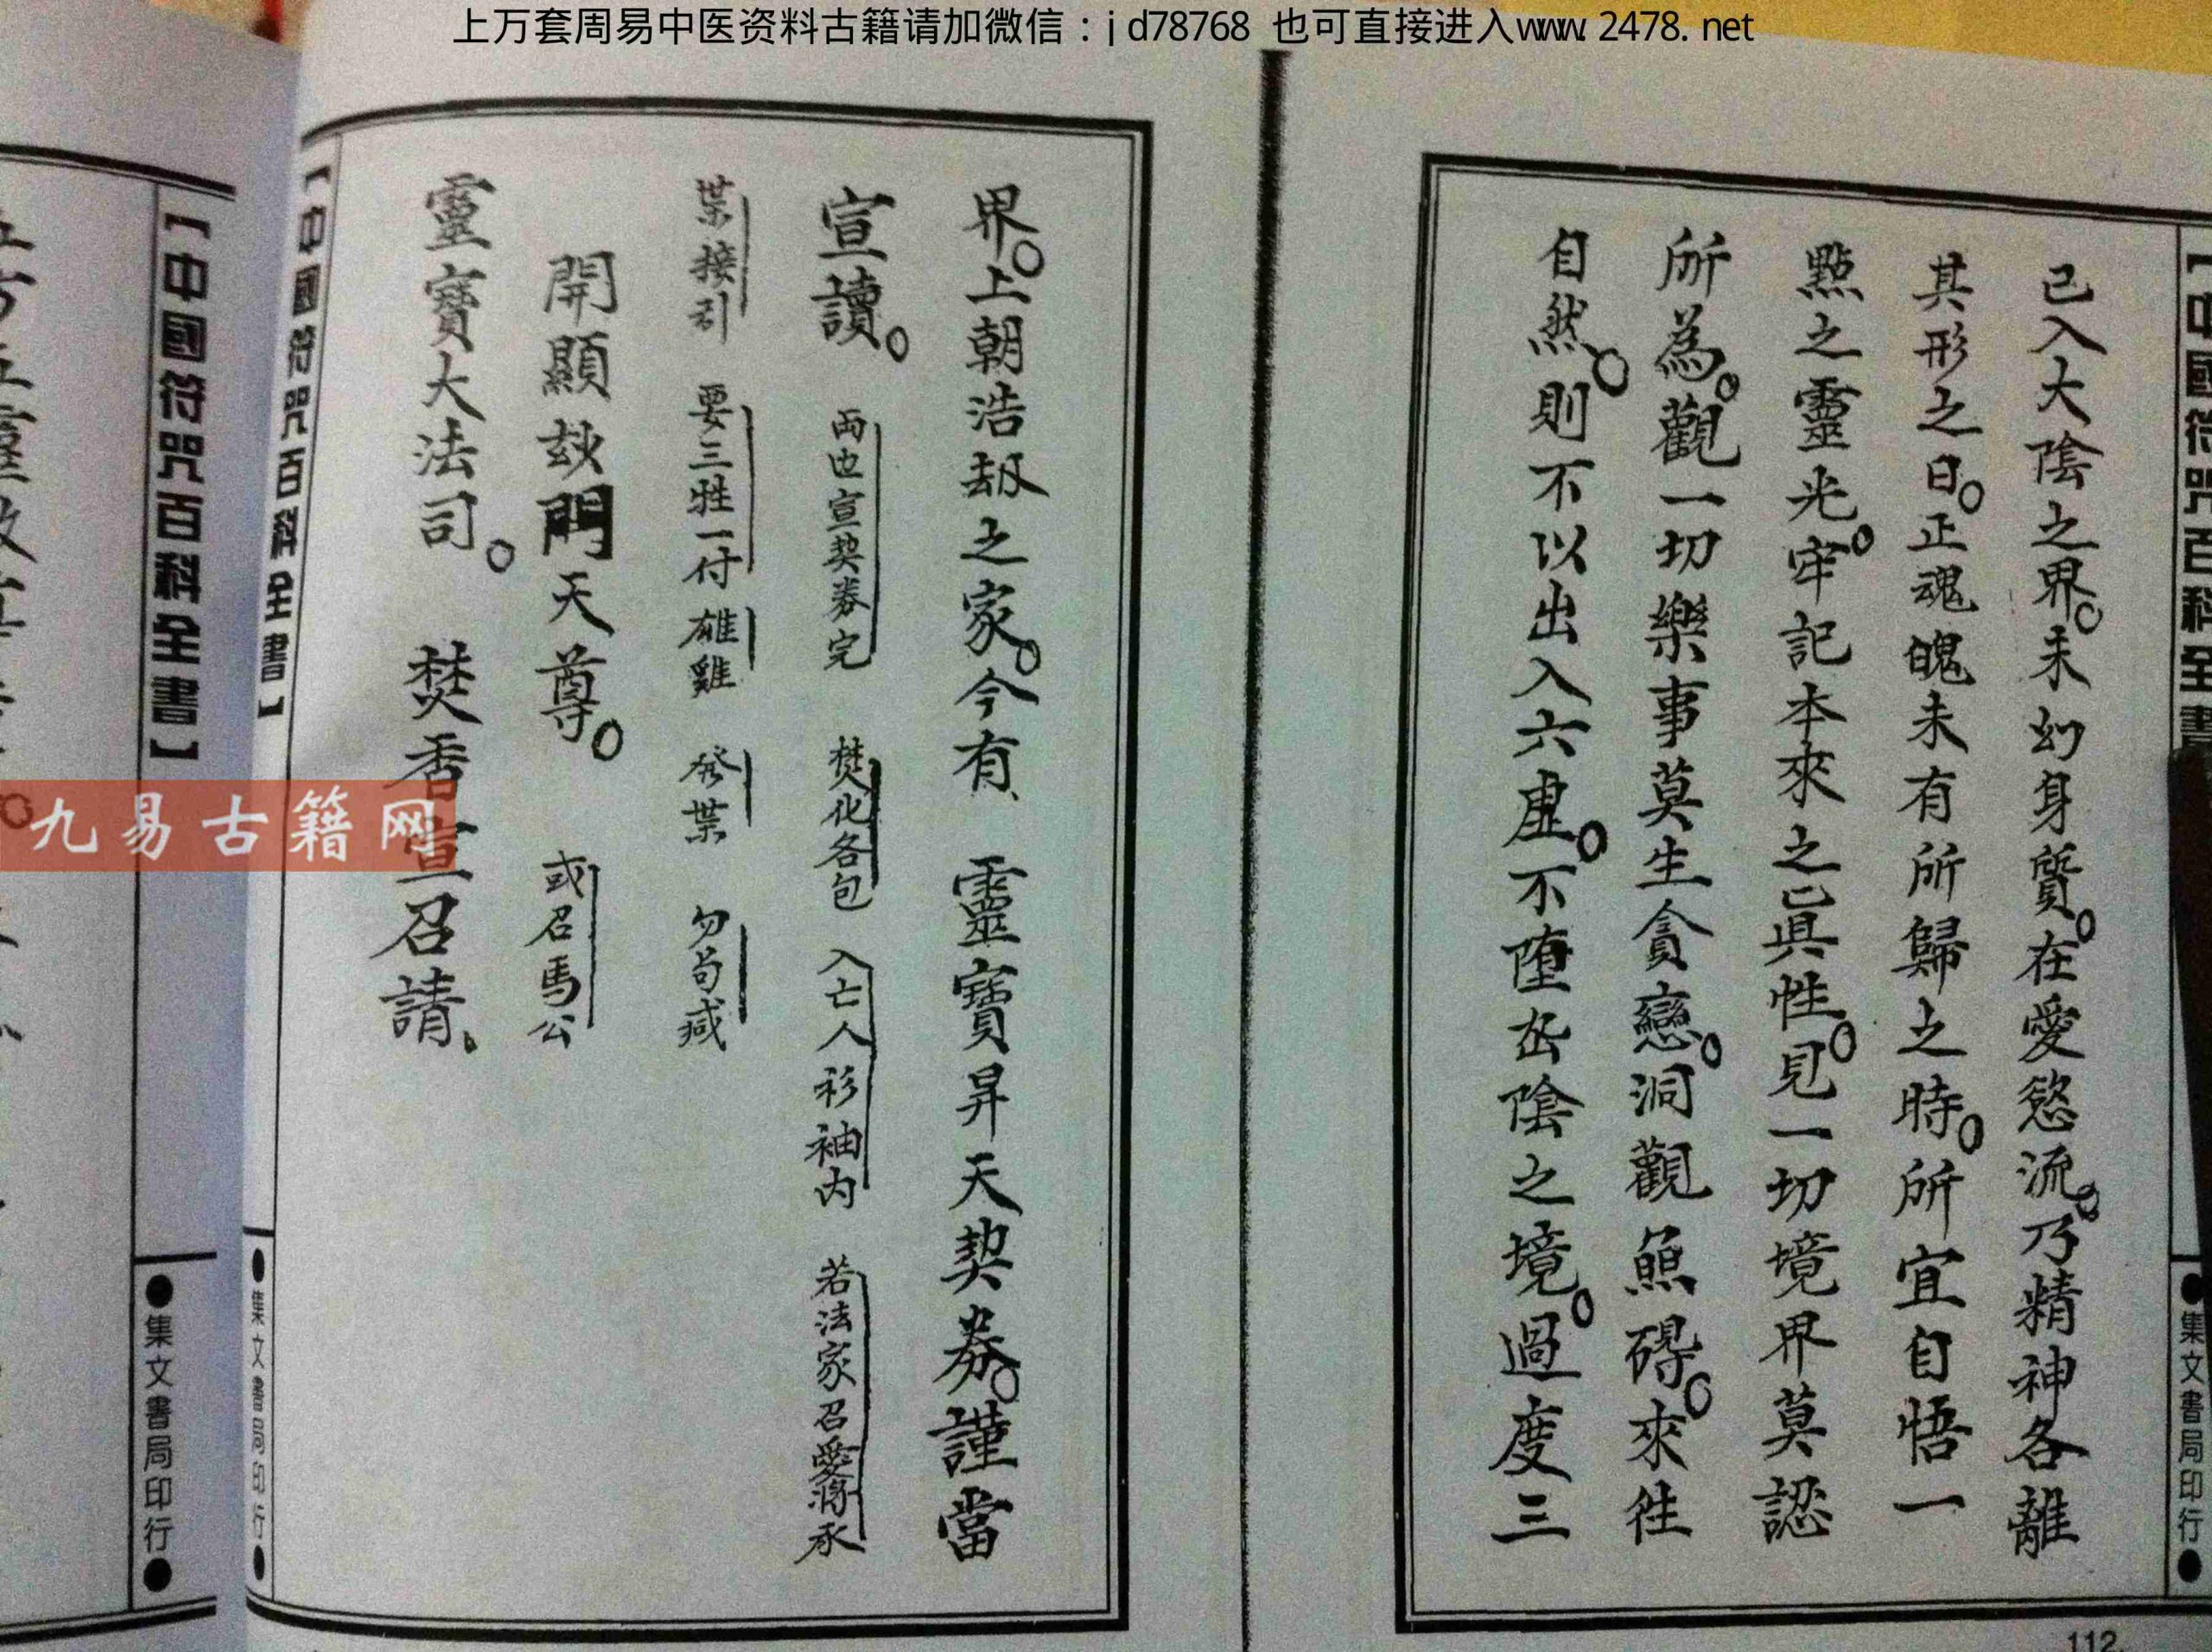 上万套周易中医资料古籍请加微信：jd78768 也可直接进入www.2478.net
【中國符咒百科全書
●集文書局印行●
已入大陰之界。未幻身質。在愛慾流。乃精神各離
其形之日。正魂魄未有所歸之時。所宜自悟一
點之靈光。牢記本來之真性。見一切境界莫認
所為。觀一切樂事莫生貪戀。洞觀無礙。來往
自然。則不以出入六虛。不墮陰之境。過度三
112
界。上朝浩劫之家。今有、 靈寶昇天契券。謹當
宣讀。 両也宣契券完 焚化各包 入亡人衫袖内 若法家召愛將承
葉接引 要三牲一付 雄雞 發葉 勿苟
開顯玅門天尊。 或召馬公
靈寶大法司。 焚香宣召請、
【中國符咒百科全書】
●集文書局印行●
【中國符咒百科全書】
●集文書局印行●
九易古籍网